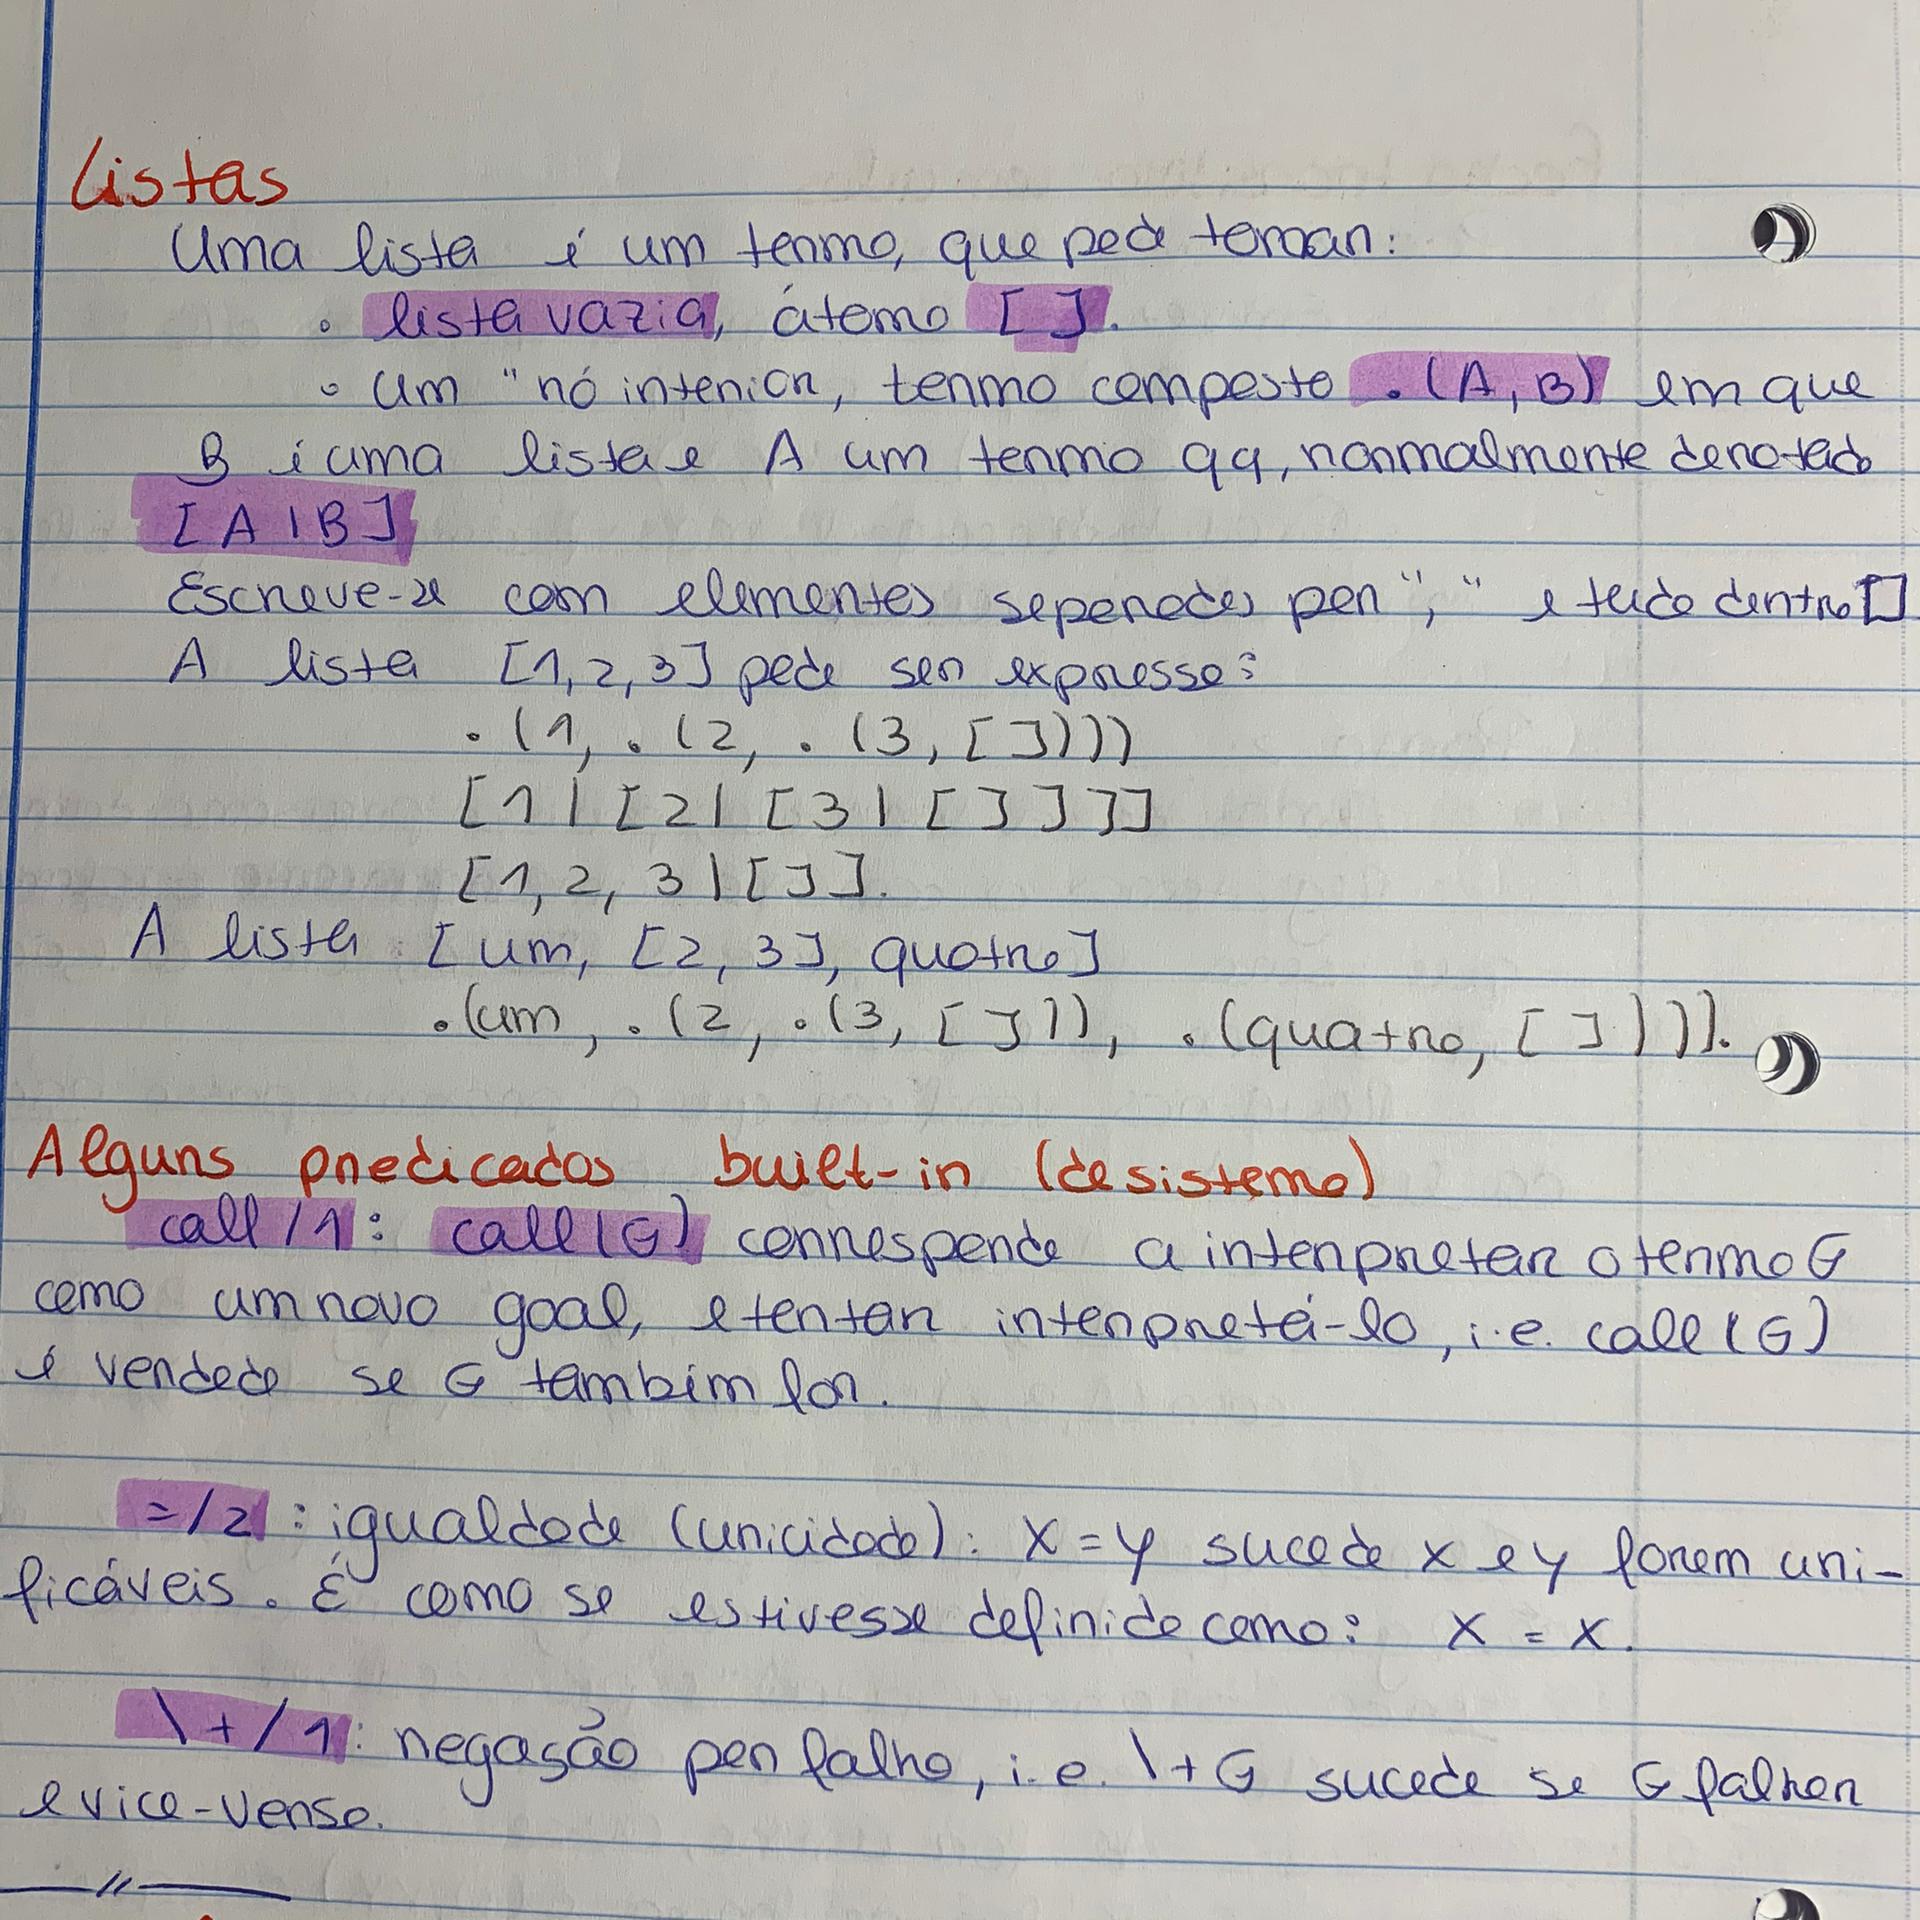 Listas
Uma lista é um termo, que pode tomar:
◦ lista vazia, átomo [ ].
◦ um "nó interior, termo composto .(A, B) em que
B é uma lista e A um termo qq, normalmente denotado
[A|B]
Escreve-se com elementos separados por "," e tudo dentro []
A lista [1,2,3] pode ser expressa:
.(1, .(2, .(3, [ ])))
[1|[2|[3|[ ]]]]
[1,2,3|[ ]].
A lista: [um, [2,3], quatro]
.(um, .(2, .(3, [ ])), .(quatro, [ ]))).
Alguns predicados built-in (de sistema)
call/1: call(G) corresponde a interpretar o termo G
como um novo goal, e tentar interpretá-lo, i.e. call(G)
é verdade se G também for.
=/2: igualdade (unicidade): X=Y sucede X e Y forem uni-
ficáveis. É como se estivesse definido como: X = X.
\+/1: negação por falha, i.e. \+G sucede se G falhar
e vice-versa.